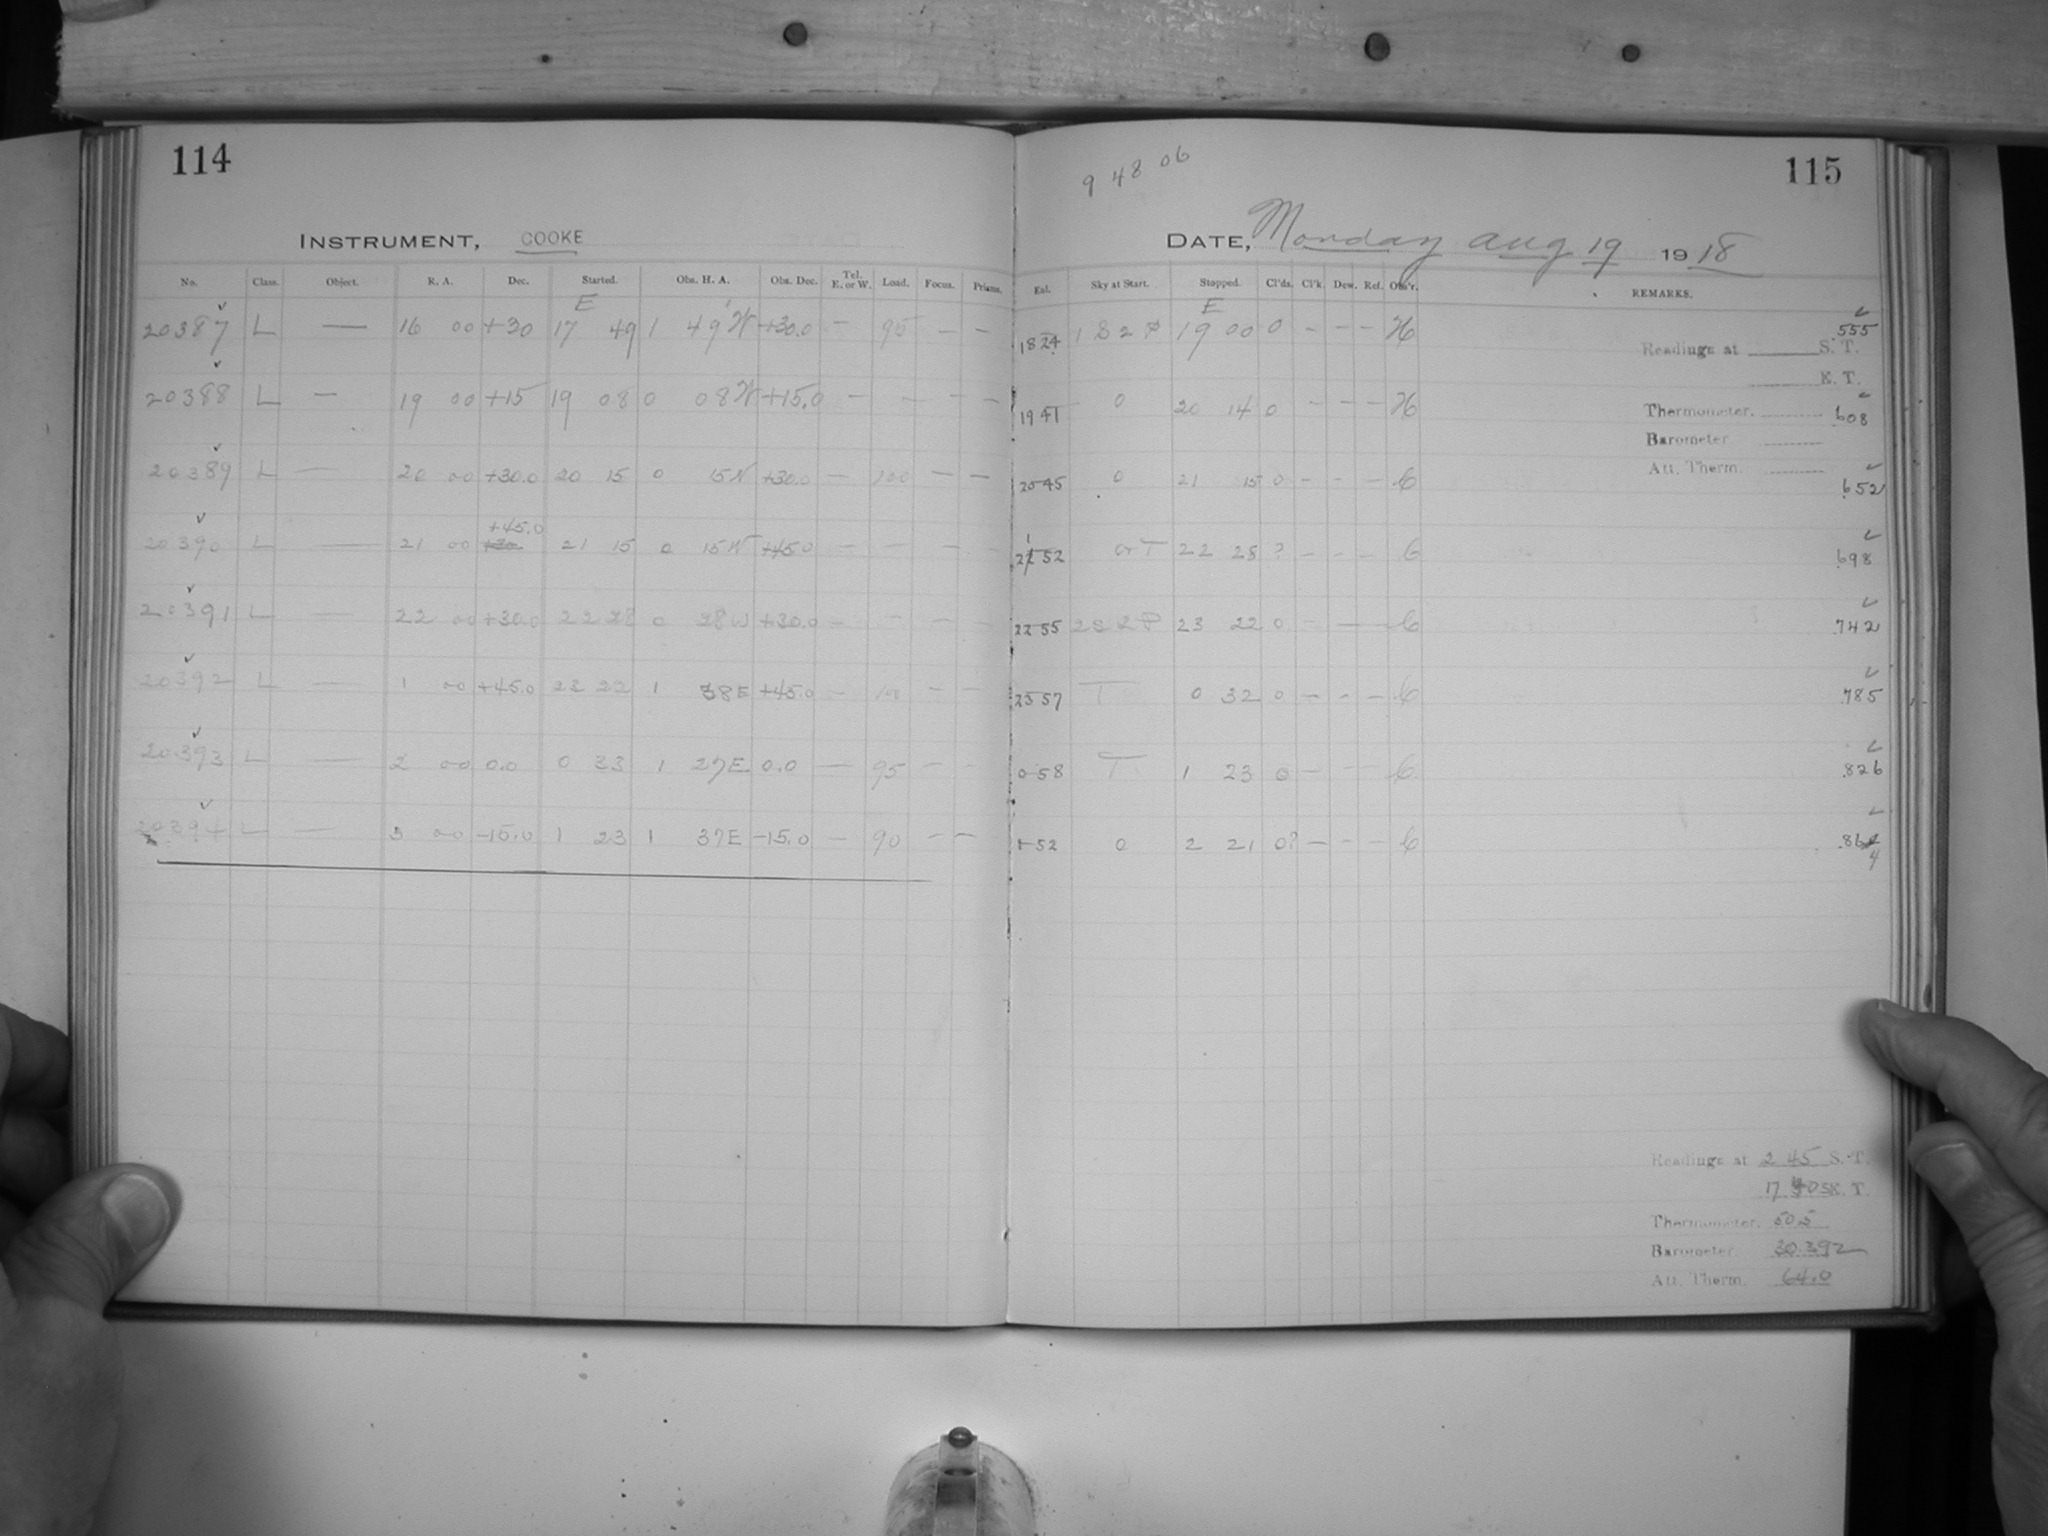 114
INSTRUMENT, COOKE
No. Class. Object. R. A. Dec. Started. Obs. H. A. Obs. Dec. Tel. E. or W. Load. Focus. Prisms.
E
20387 L — 16 00 +30 17 49 1 49 W +30.0 — 95 — —
20388 L — 19 00 +15 19 08 0 08 W +15.0 — — — —
20389 L — 20 00 +30.0 20 15 0 15 W +30.0 — 100 — —
+45.0
20390 L — 21 00 +30 21 15 0 15 W +45.0 — — — —
20391 L — 22 00 +30.0 22 28 0 28 W +30.0 — — — —
20392 L — 1 00 +45.0 23 22 1 38 E +45.0 — — —
20393 L — 2 00 0.0 0 33 1 27 E 0.0 — 95 — —
20394 L — 3 00 -15.0 1 23 1 37 E -15.0 — 90 — —
9 48 06
115
DATE, Monday Aug 19 1918
Ent. Sky at Start. Stopped. Cl'ds. Cl'k. Dew. Ref. Obs'r. REMARKS.
E
18 24 1 S 2 P 19 00 0 — — — H .555
Readings at S. T.
E. T.
19 41 0 20 14 0 — — — H .608
Thermometer.
Barometer
Att. Therm.
20 45 0 21 15 0 — — — .652
21 52 0 or T 22 28 ? — — — .698
22 55 2 S 2 P 23 22 0 — — — .742
23 57 T 0 32 0 — — — .785
0 58 T 1 23 0 — — — .826
1 52 0 2 21 0? — — — .864
Readings at 2 45 S. T.
17 E. T.
Thermometer. 50.5
Barometer 30.392
Att. Therm. 64.0